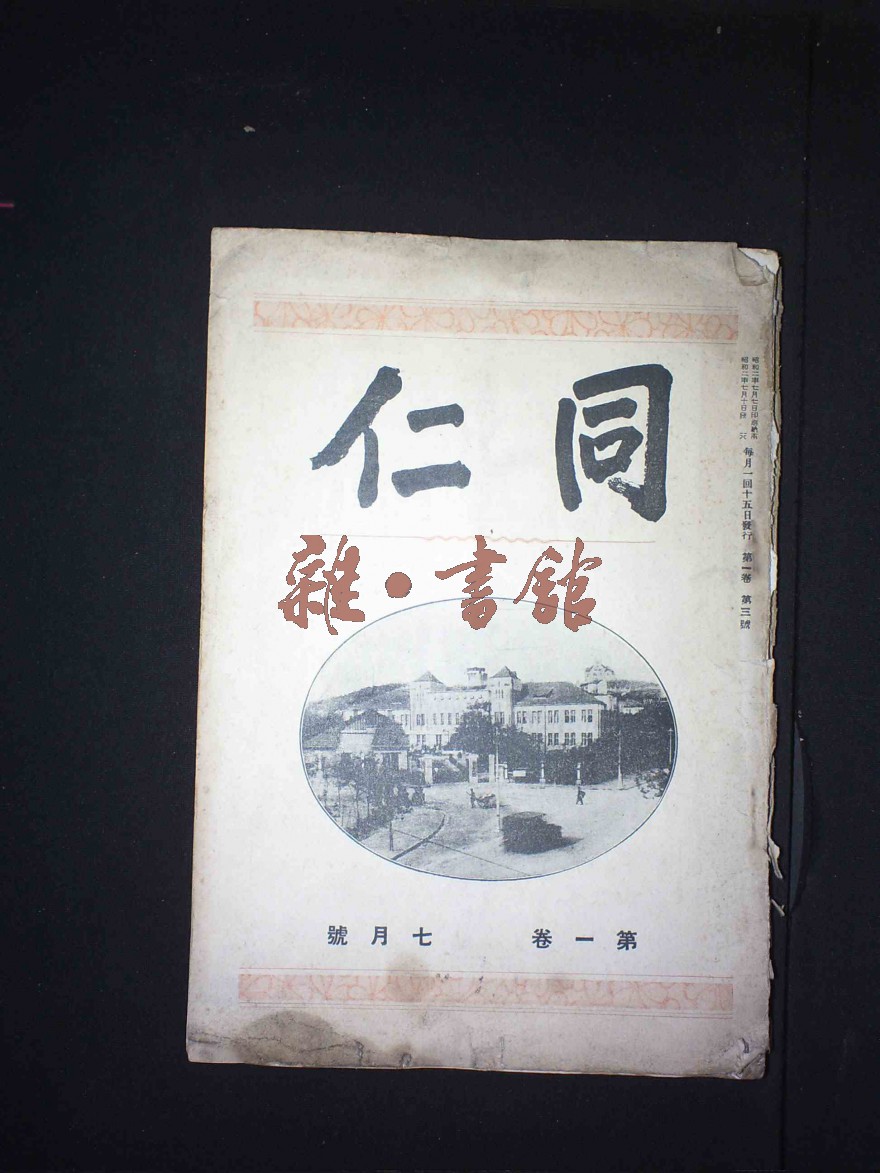 同仁
雜·書館
第一卷 七月號
昭和二年七月七日印刷納本
昭和二年七月十日發行
每月一回十五日發行 第一卷 第三號